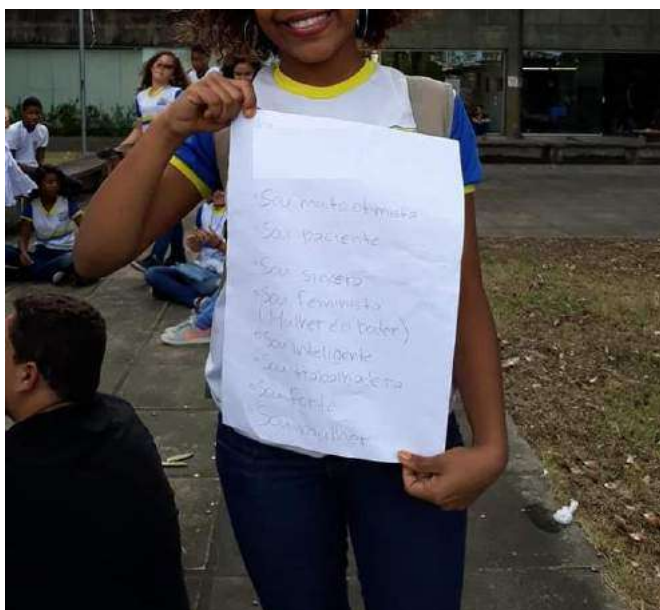 •Sou muito otimista
•Sou paciente
•Sou sincera
•Sou feminista
(Mulher do poder)
•Sou inteligente
•Sou trabalhadora
•Sou forte
Sou mulher